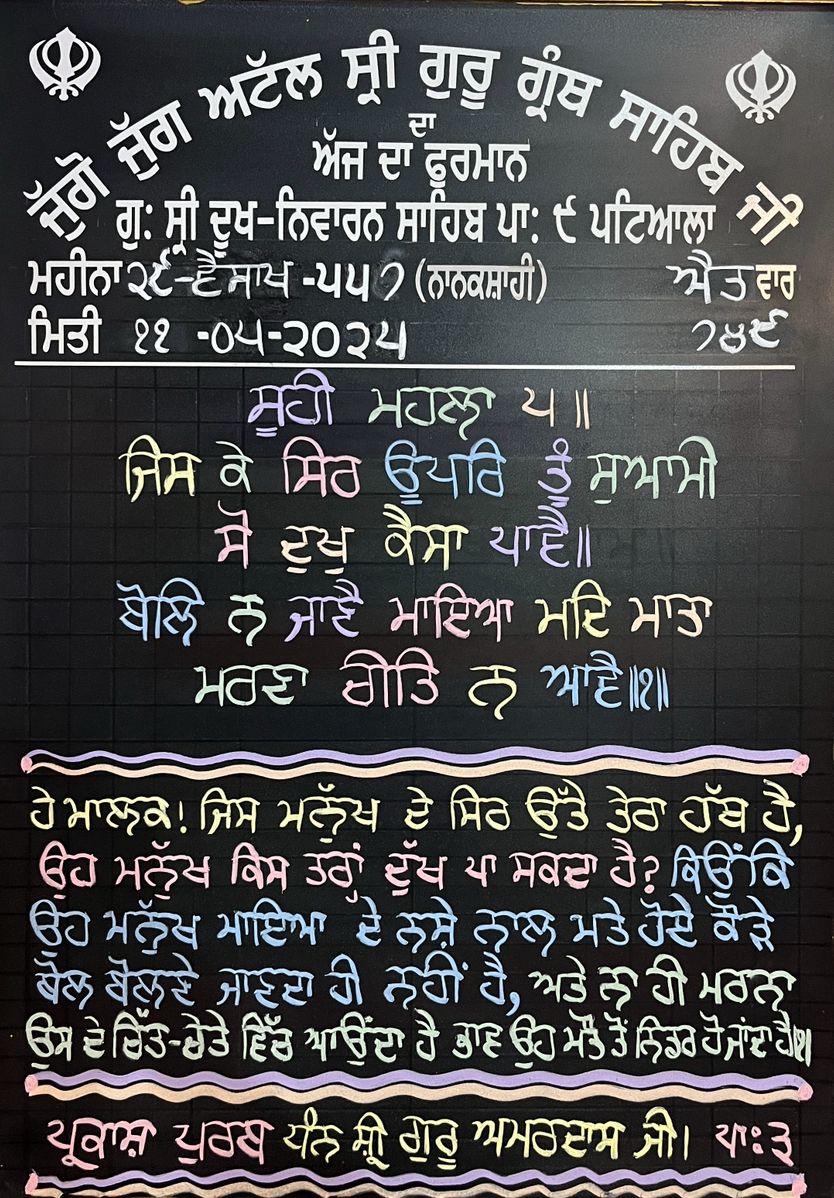 ਜੁੱਗੋ ਜੁੱਗ ਅਟੱਲ ਸ੍ਰੀ ਗੁਰੂ ਗ੍ਰੰਥ ਸਾਹਿਬ ਜੀ
ਦਾ
ਅੱਜ ਦਾ ਫੁਰਮਾਨ
ਗੁ: ਸ੍ਰੀ ਦੂਖ-ਨਿਵਾਰਨ ਸਾਹਿਬ ਪਾ: ੯ ਪਟਿਆਲਾ
ਮਹੀਨਾ ੨੯-ਵੈਸਾਖ -੫੫੭ (ਨਾਨਕਸ਼ਾਹੀ) ਐਤ ਵਾਰ
ਮਿਤੀ ੧੧ -੦੫-੨੦੨੫ ੭੪੯
ਸੂਹੀ ਮਹਲਾ ੫ ॥
ਜਿਸ ਕੇ ਸਿਰ ਊਪਰਿ ਤੂੰ ਸੁਆਮੀ
ਸੋ ਦੁਖੁ ਕੈਸਾ ਪਾਵੈ॥
ਬੋਲਿ ਨ ਜਾਣੈ ਮਾਇਆ ਮਦਿ ਮਾਤਾ
ਮਰਣਾ ਚੀਤਿ ਨ ਆਵੈ॥੧॥
ਹੇ ਮਾਲਕ! ਜਿਸ ਮਨੁੱਖ ਦੇ ਸਿਰ ਉੱਤੇ ਤੇਰਾ ਹੱਥ ਹੈ,
ਉਹ ਮਨੁੱਖ ਕਿਸ ਤਰਾਂ ਦੁੱਖ ਪਾ ਸਕਦਾ ਹੈ? ਕਿਉਂਕਿ
ਉਹ ਮਨੁੱਖ ਮਾਇਆ ਦੇ ਨਸ਼ੇ ਨਾਲ ਮਤੇ ਹੋਏ ਕੌੜੇ
ਬੋਲ ਬੋਲਣੇ ਜਾਣਦਾ ਹੀ ਨਹੀਂ ਹੈ, ਅਤੇ ਨਾ ਹੀ ਮਰਨਾ
ਉਸ ਦੇ ਚਿੱਤ-ਚੇਤੇ ਵਿੱਚ ਆਉਂਦਾ ਹੈ ਭਾਵ ਉਹ ਮੌਤ ਤੋਂ ਨਿਡਰ ਹੋ ਜਾਂਦਾ ਹੈ॥੧॥
ਪ੍ਰਕਾਸ਼ ਪੁਰਬ ਧੰਨ ਸ਼੍ਰੀ ਗੁਰੂ ਅਮਰਦਾਸ ਜੀ। ਪਾ:੩